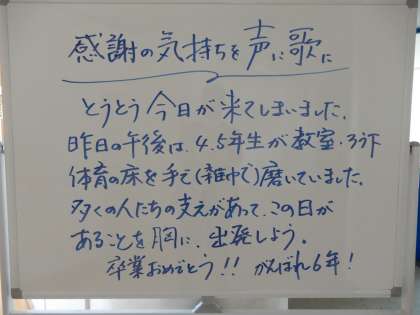 感謝の気持ちを声に歌に
とうとう今日が来てしまいました。
昨日の午後は、4.5年生が教室・ろう下
体育の床を手で(雑巾で)磨いていました。
多くの人たちの支えがあって、この日が
あることを胸に、出発しよう。
卒業おめでとう!! がんばれ6年!